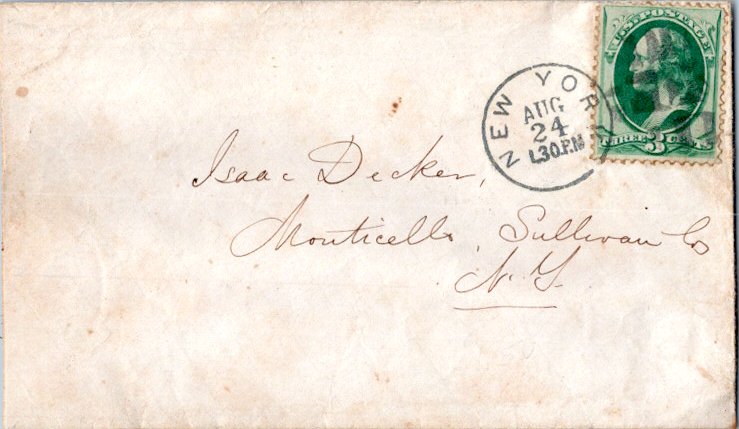 U.S. POSTAGE
THREE 3 CENTS
NEW YORK
AUG
24
1.30 P.M
Isaac Decker,
Monticello, Sullivan Co
N. Y.